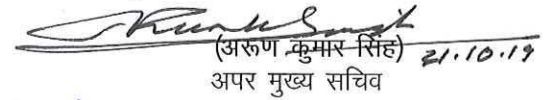 (अरूण कुमार सिंह) 21.10.19
अपर मुख्य सचिव